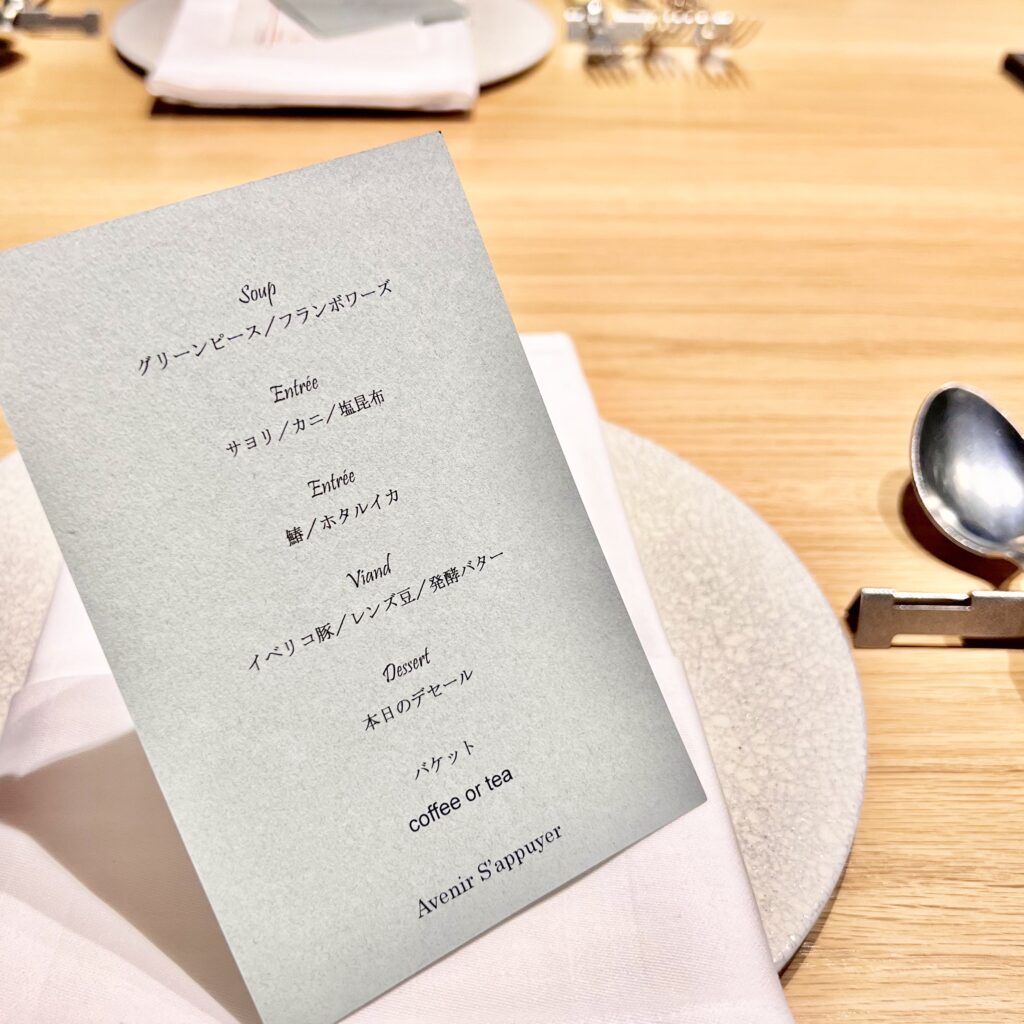 Soup
グリーンピース／フランボワーズ
Entrée
サヨリ／カニ／塩昆布
Entrée
鰆／ホタルイカ
Viand
イベリコ豚／レンズ豆／発酵バター
Dessert
本日のデセール
バケット
coffee or tea
Avenir S'appuyer